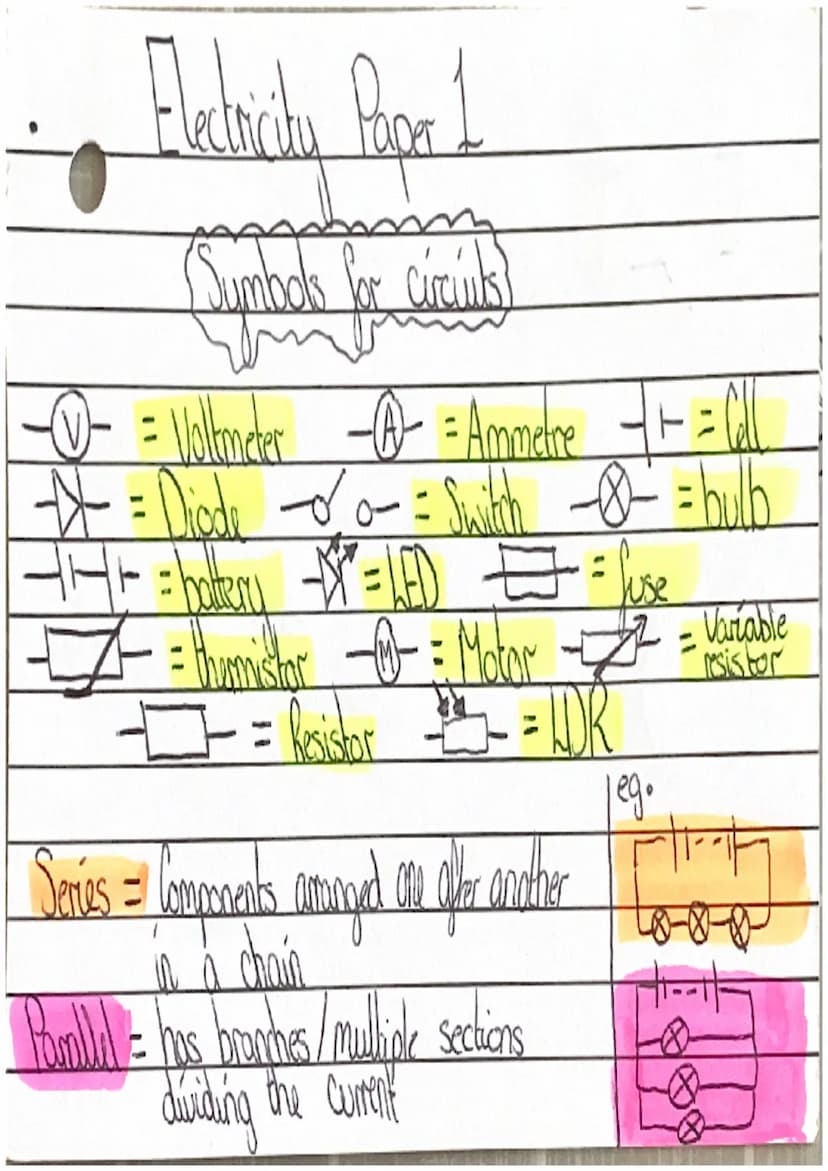 Electricity Paper 1
Symbols for circiuts
V = Voltmeter A = Ammetre = Cell
= Diode = Switch = bulb
= battery = LED = fuse
= thermistor M = Motor = Variable resistor
= Resistor = LDR
eg.
Series = Components arranged one after another
in a chain
Parallel = has branches/multiple sections
dividing the current